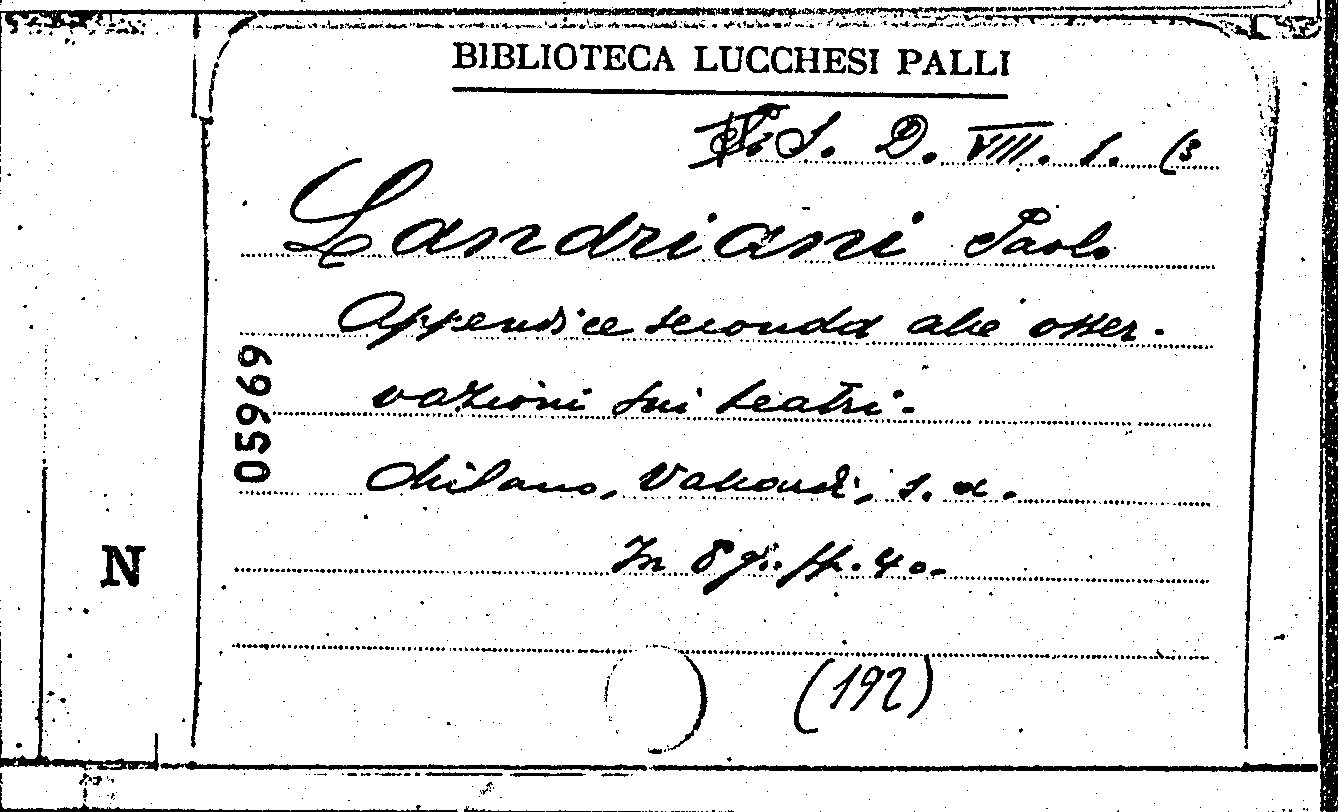 BIBLIOTECA LUCCHESI PALLI
S. D. VIII. 1. (3
Landriani Paolo
Appendice seconda alle osser-
vazioni sui teatri.
Milano, Vallardi, s. a.
In 8 gr. pp. 40.
(192)
05969
N